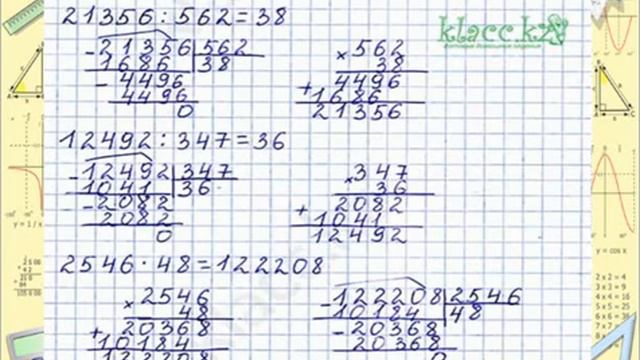 21356:562=38
klacc.kz
-21356|562
1686 |38
-4496
4496
0
×562
38
+4496
1686
21356
12492:347=36
-12492|347
1041 |36
-2082
2082
0
×347
36
+2082
1041
12492
2546·48=122208
×2546
48
+20368
10184
122208
-122208|2546
10184 |48
-20368
20368
0
y = 1/x
y = cos x
2 x 2 = 4
3 x 3 = 9
4 x 4 = 16
5 x 5 = 25
6 x 6 = 36
7 x 7 = 49
8 x 8 = 64